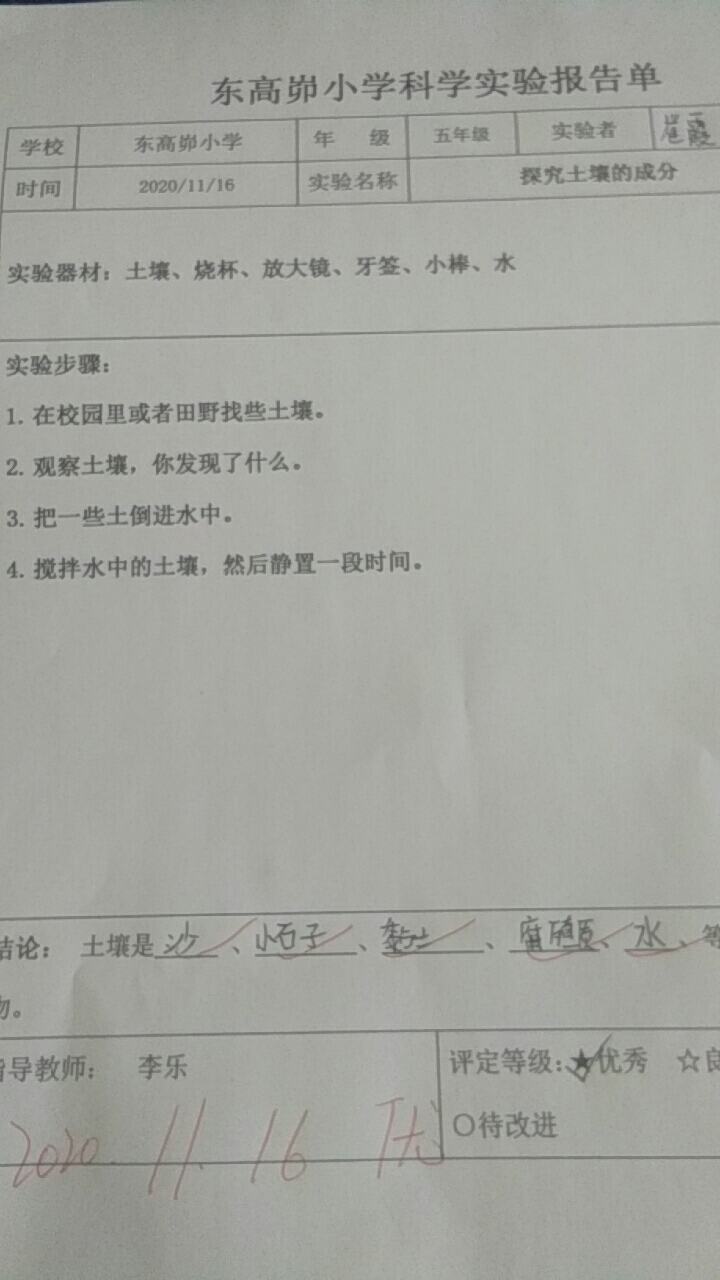 东高峁小学科学实验报告单
学校 东高峁小学 年 级 五年级 实验者
时间 2020/11/16 实验名称 探究土壤的成分
实验器材：土壤、烧杯、放大镜、牙签、小棒、水
实验步骤：
1. 在校园里或者田野找些土壤。
2. 观察土壤，你发现了什么。
3. 把一些土倒进水中。
4. 搅拌水中的土壤，然后静置一段时间。
结论： 土壤是沙、小石子、黏土、腐殖质、水、等
物。
指导教师： 李乐 评定等级：★优秀 ☆良
○待改进
2020. 11. 16 优